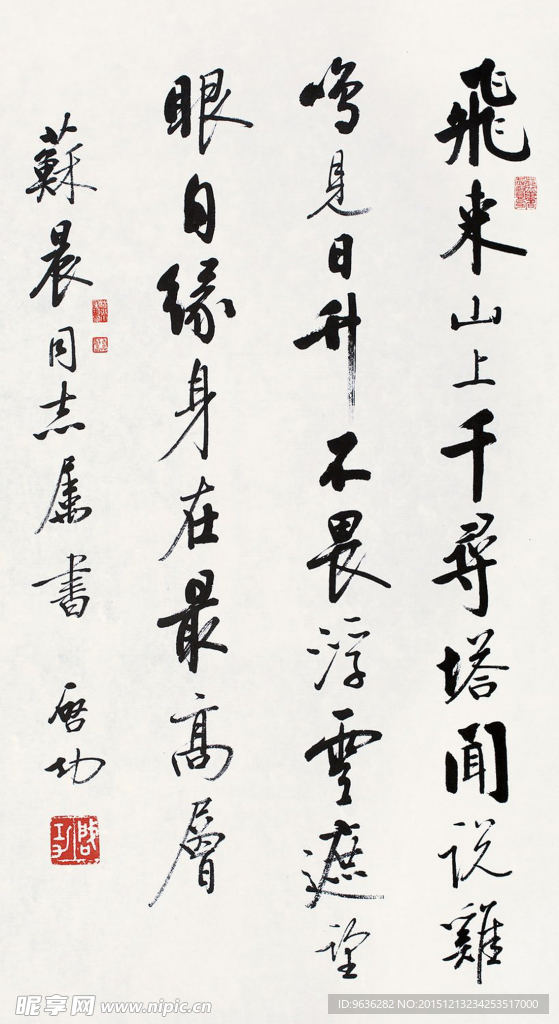 飛来山上千尋塔聞説雞
鳴見日升不畏浮雲遮望
眼自緣身在最高層
蘇晨同志属書 啓功
啓功
昵享网 www.nipic.cn
ID:9636282 NO:20151213234253517000